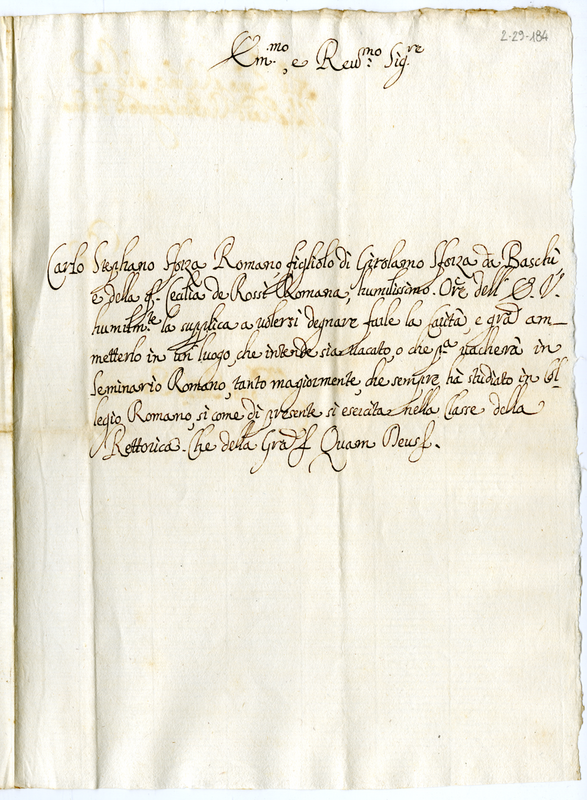 2-29-184
Em.mo e Reu.mo Sig.re
Carlo Stephano Sforza Romano figliolo di Girolamo Sforza da Baschi
e della q. Cecilia de Rossi Romana, humilissimo Ore dell'
humilm.te la supplica a volersi degnare farle la carità, e grã am-
metterlo in un luogo, che intende sia vacato, o che p.a vacherà in
Seminario Romano, tanto magiormente, che sempre hà studiato in Col-
legio Romano, si come di presente si esercita nella Clase della
Rettorica. Che della Grã Quam Deus